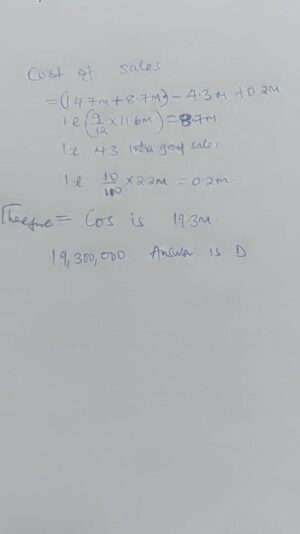 Cost of sales
=(14.7m+8.7m)- 4.3m +0.2m
i.e (9/12 x11.6m) =8.7m
i.e 4.3 intra group sales
i.e 10/100 x2.2m =0.2m.
Therefore = Cos is 19.3m.
19,300,000. Answer is D